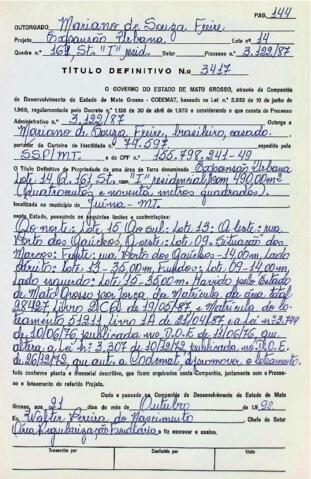 PAG. 144
OUTORGADO Mariano de Souza Freire
Projeto Expansão Urbana Lote n.º 14
Quadra n.º 161, St. "I", resid. Setor Processo n.º 3.122/87
TÍTULO DEFINITIVO N.º 3417
O GOVERNO DO ESTADO DE MATO GROSSO, através da Companhia
de Desenvolvimento do Estado de Mato Grosso - CODEMAT, baseado na Lei n.º 2.933 de 19 de junho de
1969, regulamentada pelo Decreto n.º 1.138 de 30 de abril de 1970 e considerando o que consta do Processo
Administrativo n.º 3.122/87 Outorga a
Mariano de Souza Freire, brasileiro, casado.
portador da Carteira de Identidade n.º 74.597 expedida pelo
SSP/MT. e do CPF n.º 155.798.241-49
O Título Definitivo de Propriedade de uma área de Terra denominada Expansão Urbana
Lote 14 Q. 161, St. "I" residencial, com 490,00m²
(quatrocentos e noventa metros quadrados).
localizada no município de Juína - MT.
neste Estado, possuindo os seguintes limites e confrontações:
Ao norte: Lote 15 Ao sul: Lote 13: A leste: rua
Porto dos Gaúchos, A oeste: Lote 09. Situação dos
Marcos: Frente: rua Porto dos Gaúchos - 14,00m, Lado
direito: Lote 13 - 35,00m, Fundos: Lote 09 - 14,00m
Lado esquerdo: Lote 15 - 35,00m. Havido pelo Estado de
Mato Grosso por força da Matrícula da área total
28427 Livro 2 de 19/05/87 e Matrícula do lo-
teamento 51211 livro 1A de 21/04/87 a lei n.º 3.744
de 10/06/76 publicada no D.O.E de 11/06/76, que
altera a Lei n.º 2.307 de 10/12/72 publicada no D.O.E.
de 26/12/72, que aut. a Codemat a promover o loteamento.
tudo conforme planta e memorial descritivo, que ficam arquivados nesta Companhia, juntamente com o Proces-
so e loteamento do referido Projeto.
Dado e passado na Companhia de Desenvolvimento do Estado de Mato
Grosso, aos 21 dias do mês de Outubro de 1992
Eu, Walter Pereira do Nascimento Chefe do Setor
Área Regularização Fundiária o fiz escrever e assino.
Transcrito por Conferido por Visto